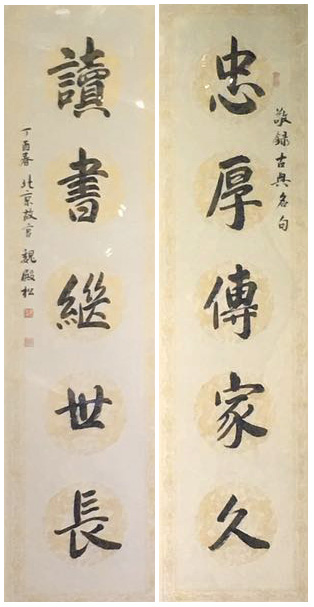 敬錄古典名句
忠厚傳家久
讀書繼世長
丁酉春 北京故宮 魏殿松